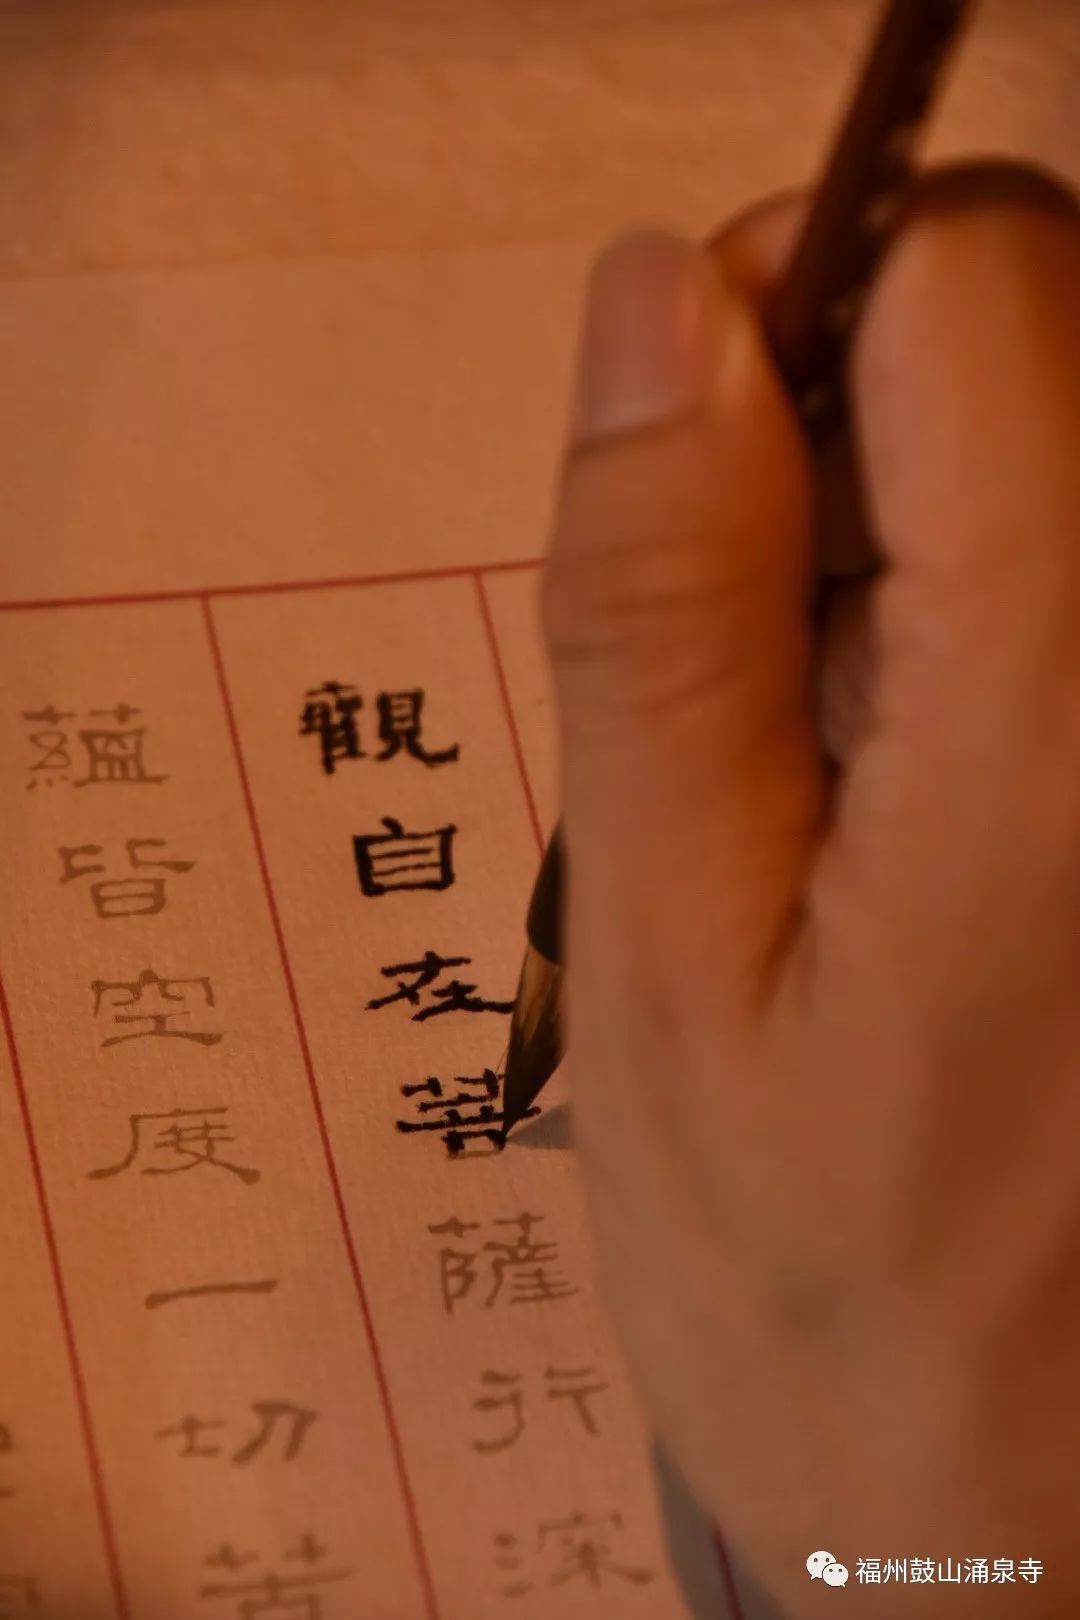 觀自在菩薩行深
蘊皆空度一切苦
福州鼓山涌泉寺